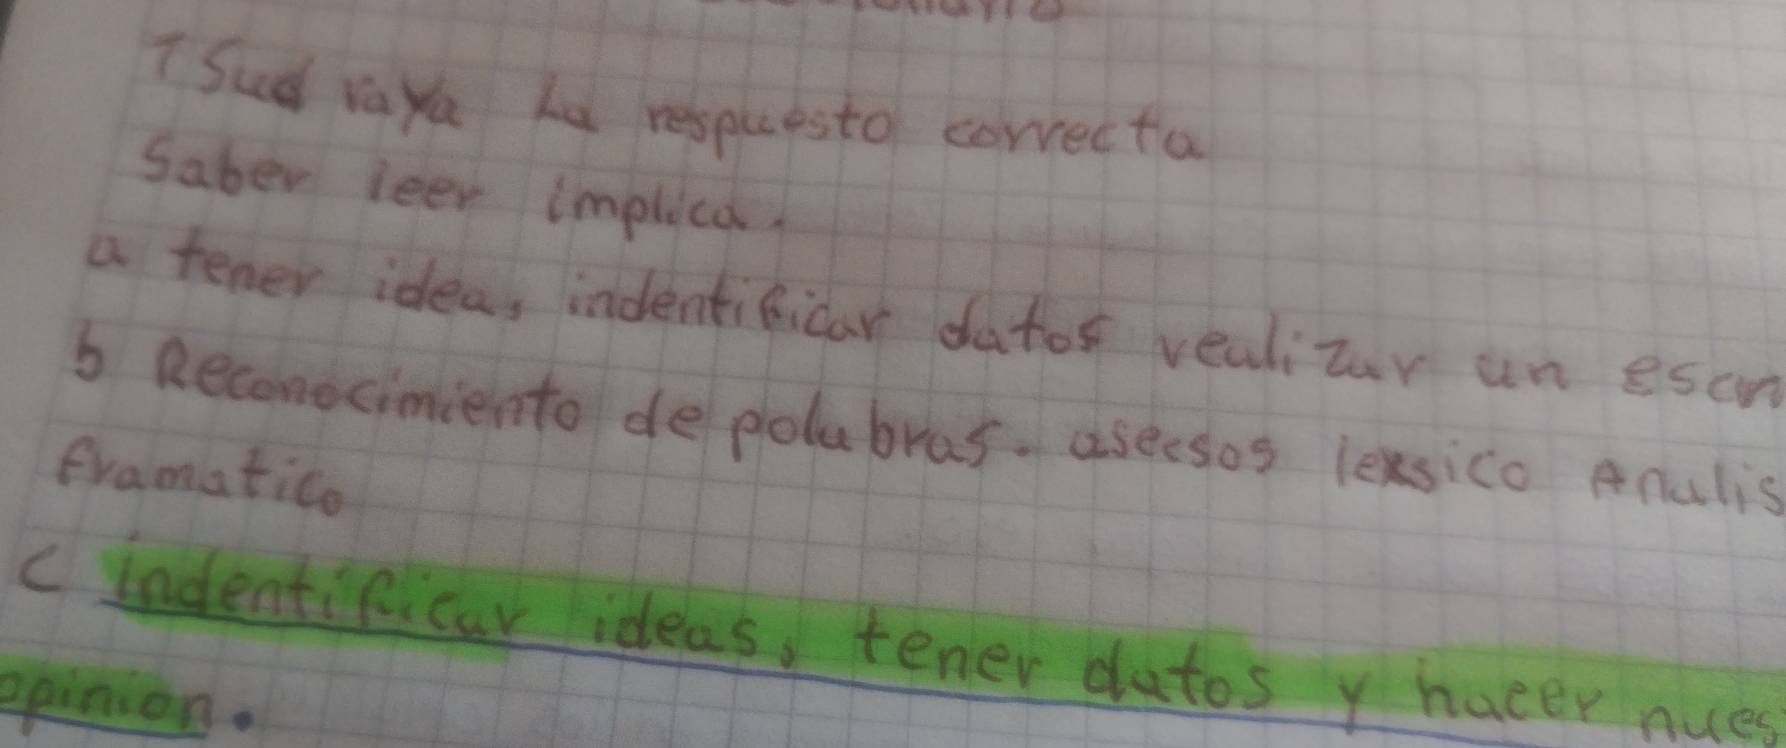 1 Sud raya La respuesto correcta
Saber leer implica.
a tener idea, indentificar datos realizar un escr
b Reconocimiento de polabras. asecsos lexsico Analis
framatico
c indentificar ideas, tener datos y hacer nues
opinion.